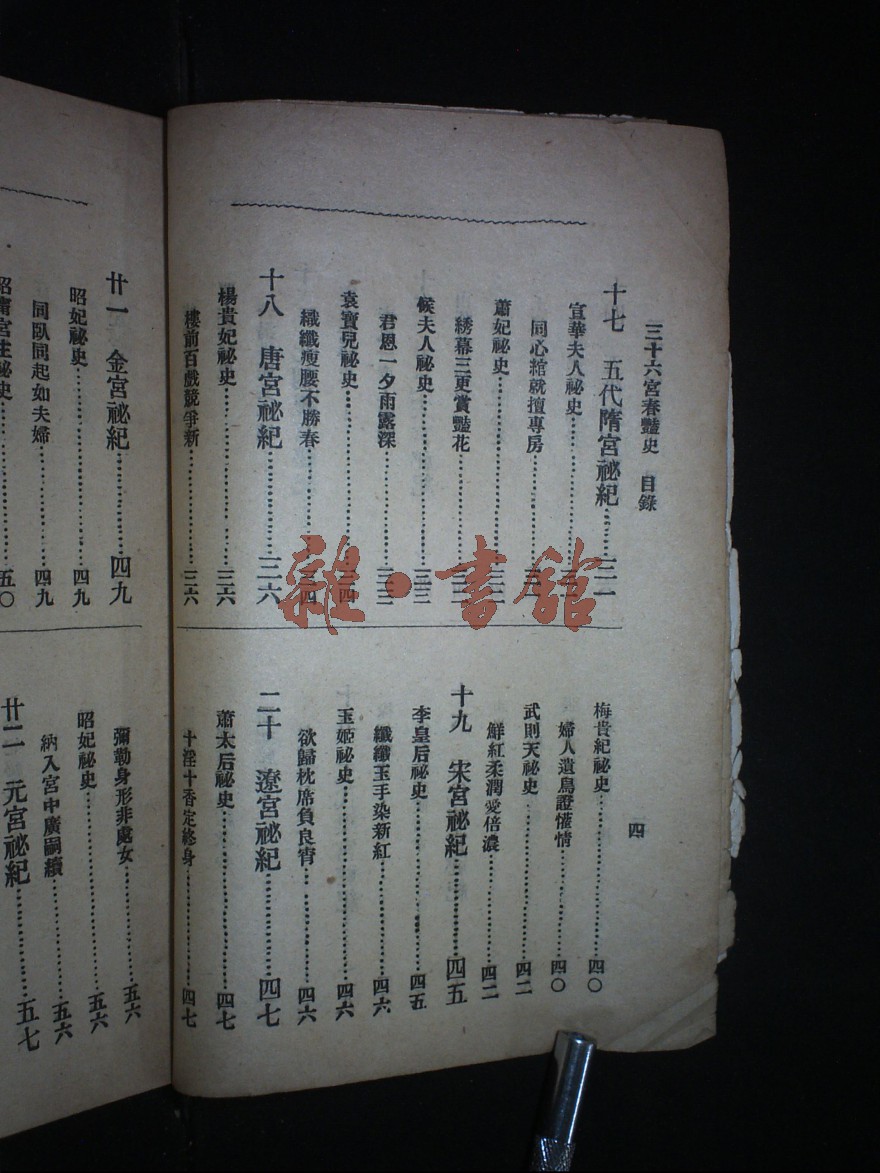 三十六宮春豔史　目錄
四
十七　五代隋宮祕紀…………三一
宣華夫人祕史…………三一
同心綰就擅專房…………三一
蕭妃祕史…………三二
綉幕三更賞豔花…………三二
候夫人祕史…………三三
君恩一夕雨露深…………三三
袁寶兒祕史…………三四
纖纖瘦腰不勝春…………三四
十八　唐宮祕紀…………三六
楊貴妃祕史…………三六
樓前百戲競爭新…………三六
梅貴紀祕史…………四〇
婦人遺鳥證懽情…………四〇
武則天祕史…………四二
鮮紅柔潤愛倍濃…………四二
十九　宋宮祕紀…………四五
李皇后祕史…………四五
纖纖玉手染新紅…………四六
玉姬祕史…………四六
欲歸枕席負良宵…………四六
二十　遼宮祕紀…………四七
蕭太后祕史…………四七
十淫十香定終身…………四七
廿一　金宮祕紀…………四九
昭妃祕史…………四九
同臥同起如夫婦…………四九
祕史…………五〇
彌勒身形非處女…………五六
昭妃祕史…………五六
納入宮中廣嗣續…………五六
廿二　元宮祕紀…………五七
雜·書館